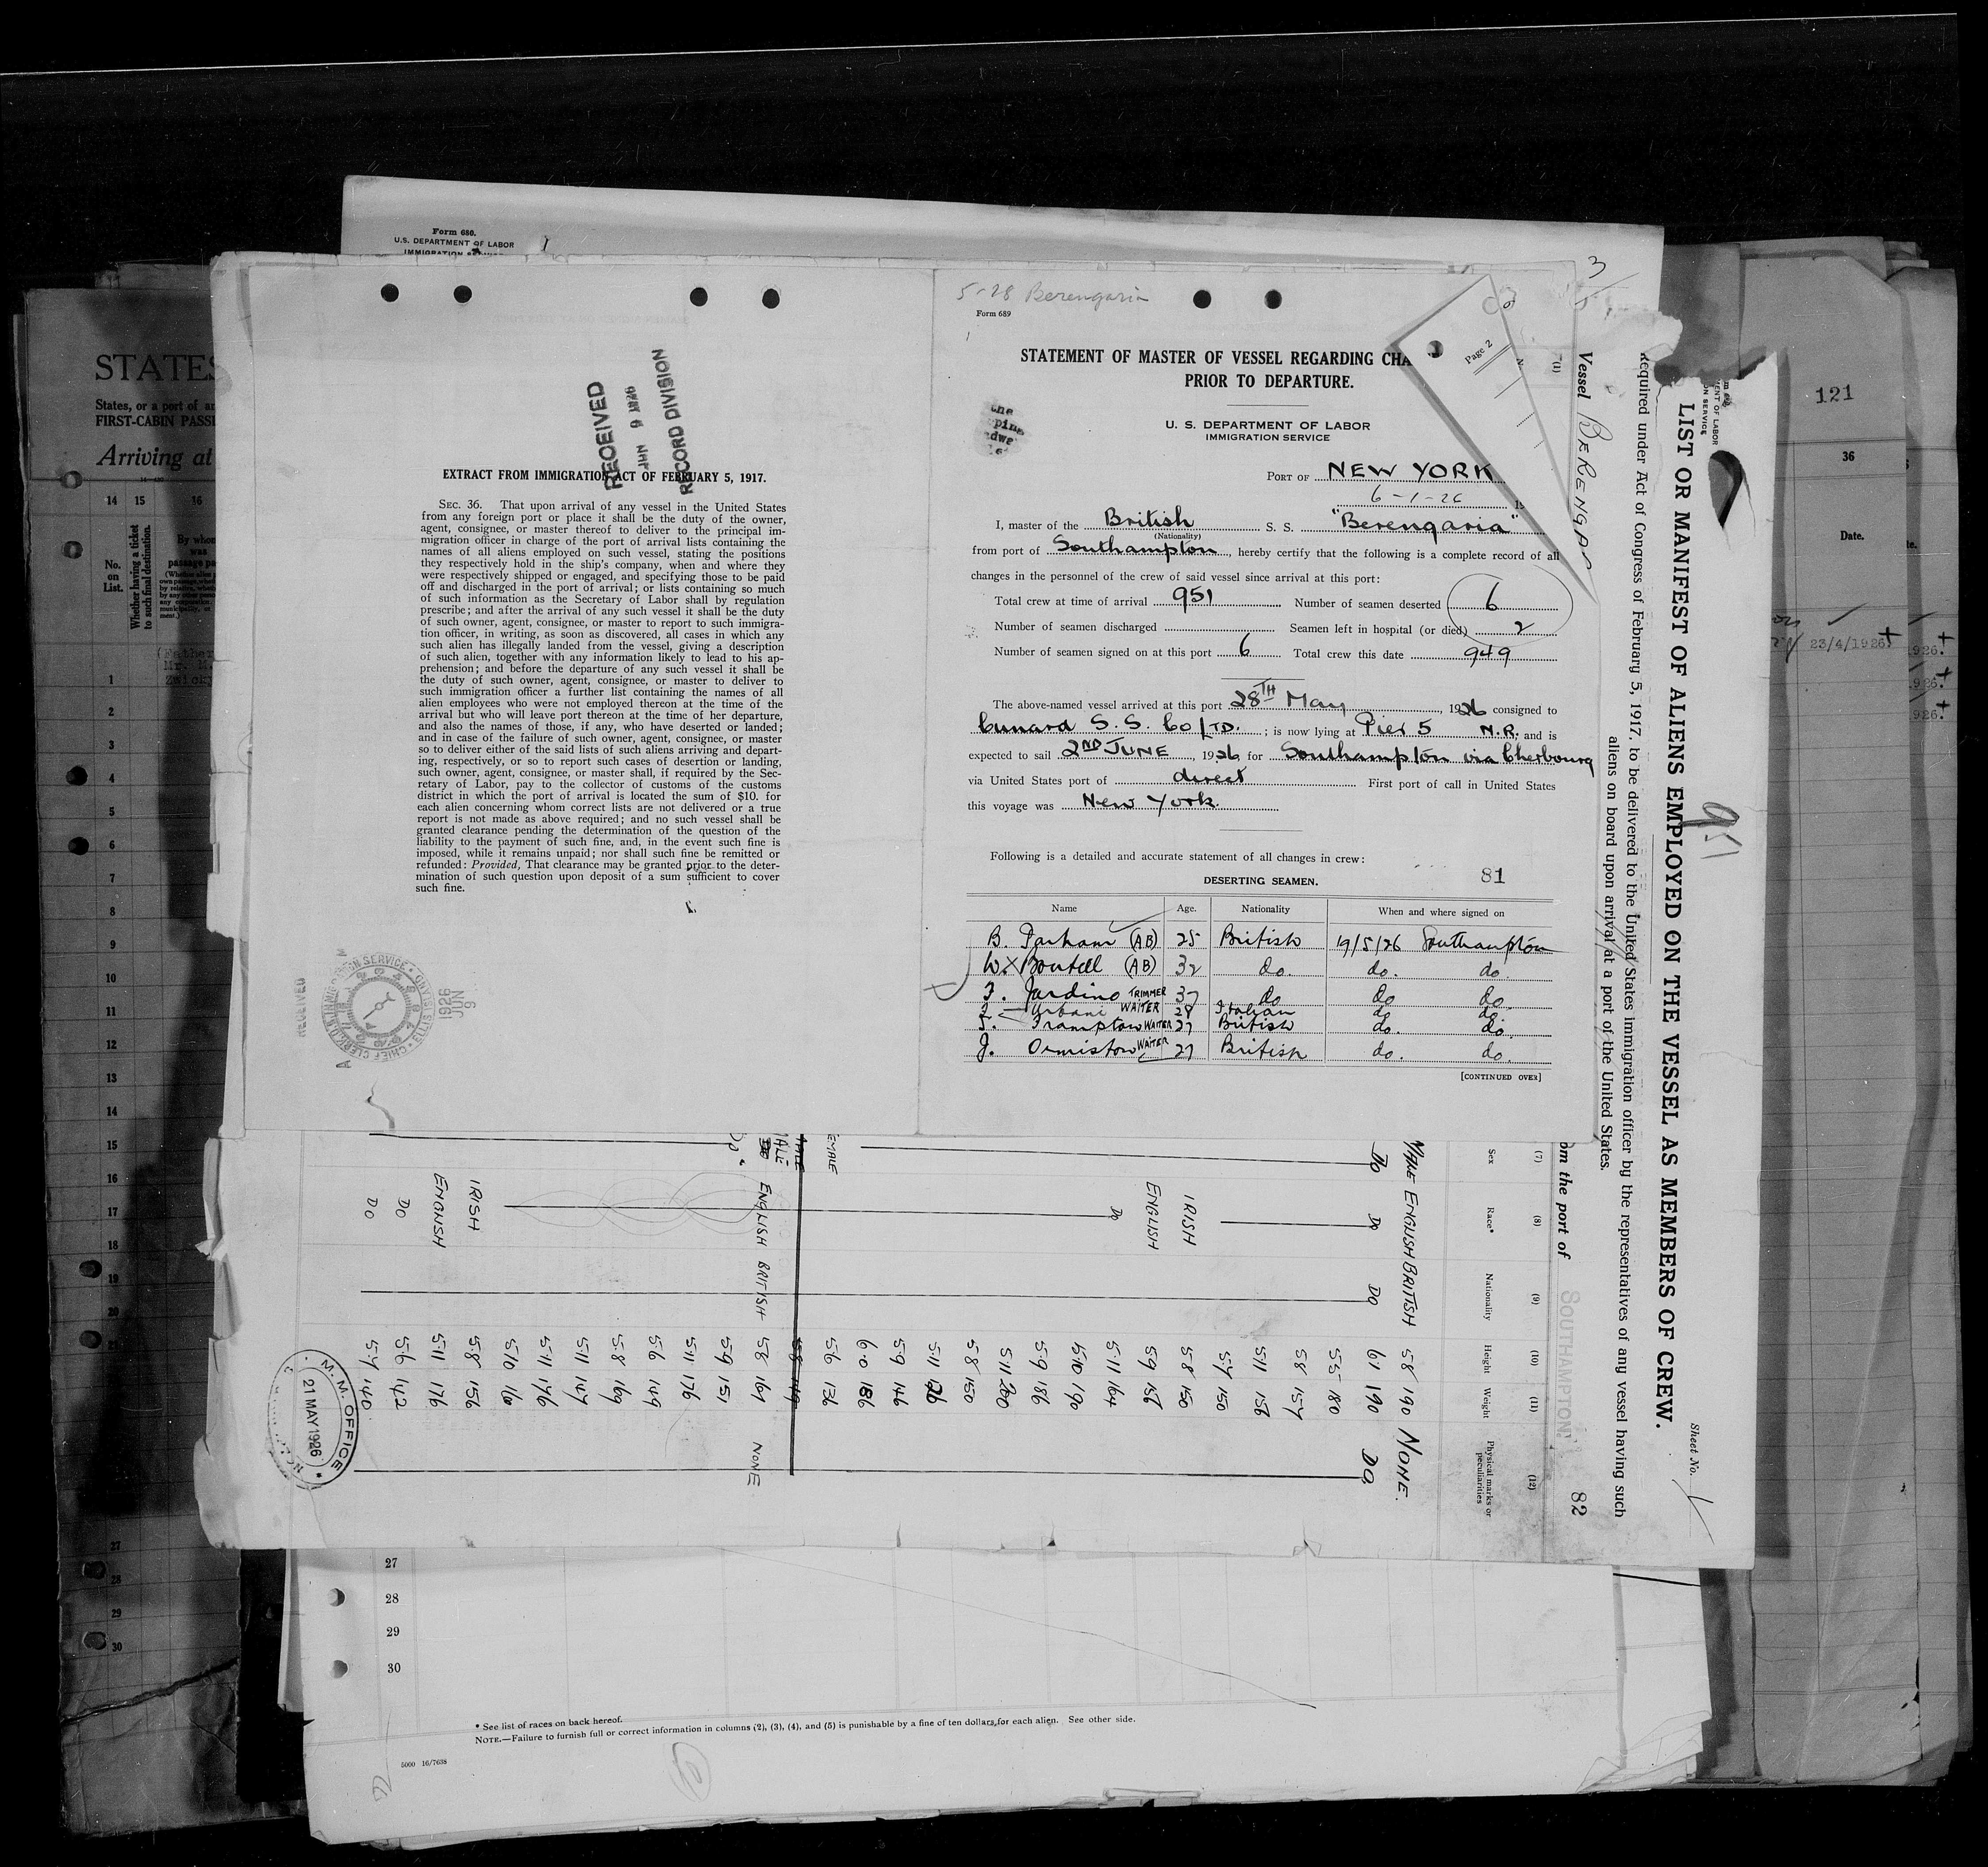 Form 680.
U.S. DEPARTMENT OF LABOR
STATES
States, or a port of
FIRST-CABIN
Arriving at
14 15 16
No. on List.
Whether having a ticket to such final destination.
By whom was
1
2
3
4
5
6
7
8
9
10
11
12
13
14
15
16
17
18
19
20
21
27
28
29
30
RECEIVED
JUN 9 1926
RECORD DIVISION
EXTRACT FROM IMMIGRATION ACT OF FEBRUARY 5, 1917.
SEC. 36. That upon arrival of any vessel in the United States
from any foreign port or place it shall be the duty of the owner,
agent, consignee, or master thereof to deliver to the principal im-
migration officer in charge of the port of arrival lists containing the
names of all aliens employed on such vessel, stating the positions
they respectively hold in the ship's company, when and where they
were respectively shipped or engaged, and specifying those to be paid
off and discharged in the port of arrival; or lists containing so much
of such information as the Secretary of Labor shall by regulation
prescribe; and after the arrival of any such vessel it shall be the duty
of such owner, agent, consignee, or master to report to such immigra-
tion officer, in writing, as soon as discovered, all cases in which any
such alien has illegally landed from the vessel, giving a description
of such alien, together with any information likely to lead to his ap-
prehension; and before the departure of any such vessel it shall be
the duty of such owner, agent, consignee, or master to deliver to
such immigration officer a further list containing the names of all
alien employees who were not employed thereon at the time of the
arrival but who will leave port thereon at the time of her departure,
and also the names of those, if any, who have deserted or landed;
and in case of the failure of such owner, agent, consignee, or master
so to deliver either of the said lists of such aliens arriving and depart-
ing, respectively, or so to report such cases of desertion or landing,
such owner, agent, consignee, or master shall, if required by the Sec-
retary of Labor, pay to the collector of customs of the customs
district in which the port of arrival is located the sum of $10. for
each alien concerning whom correct lists are not delivered or a true
report is not made as above required; and no such vessel shall be
granted clearance pending the determination of the question of the
liability to the payment of such fine, and, in the event such fine is
imposed, while it remains unpaid; nor shall such fine be remitted or
refunded: Provided, That clearance may be granted prior to the deter-
mination of such question upon deposit of a sum sufficient to cover
such fine.
RECEIVED
1926 JUN 9
5-28 Berengaria
Form 689
STATEMENT OF MASTER OF VESSEL REGARDING CHA
PRIOR TO DEPARTURE.
U. S. DEPARTMENT OF LABOR
IMMIGRATION SERVICE
PORT OF NEW YORK
6-1-26
I, master of the British S. S. "Berengaria"
(Nationality)
from port of Southampton, hereby certify that the following is a complete record of all
changes in the personnel of the crew of said vessel since arrival at this port:
Total crew at time of arrival 951 Number of seamen deserted 6
Number of seamen discharged Seamen left in hospital (or died) 2
Number of seamen signed on at this port 6 Total crew this date 949
The above-named vessel arrived at this port 28TH May, 1926 consigned to
Cunard S. S. Co LTD.; is now lying at Pier 5 N.R. and is
expected to sail 2ND JUNE, 1926 for Southampton via Cherbourg
via United States port of direct First port of call in United States
this voyage was New York.
Following is a detailed and accurate statement of all changes in crew:
DESERTING SEAMEN. 81
Name Age. Nationality When and where signed on
B. Parham (AB) 25 British 19/5/26 Southampton
W. Boutell (AB) 32 do. do. do.
F. Jardino TRIMMER 37 do do do.
Urbani WAITER 28 Italian do do.
F. Frampton WAITER 27 British do. do.
J. Ormiston WAITER 27 British do. do.
[CONTINUED OVER]
Page 2
LIST OR MANIFEST OF ALIENS EMPLOYED ON THE VESSEL AS MEMBERS OF CREW.
Required under Act of Congress of February 5, 1917, to be delivered to the United States immigration officer by the representatives of any vessel having such
aliens on board upon arrival at a port of the United States.
Vessel BERENGA
om the port of SOUTHAMPTON
Sheet No. 1
951
82
(7) (8) (9) (10) (11) (12)
Sex Race* Nationality Height Weight Physical marks or peculiarities
MALE ENGLISH BRITISH 5·8 190 NONE.
DO DO DO 6·1 190 DO
5·5 180
5·8 157
5·11 156
5·7 150
IRISH 5·8 150
ENGLISH 5·9 156
DO 5·11 164
5·10 190
5·9 186
5·11 200
5·8 150
5·11
5·9 146
6·0 186
FEMALE 5·6 136
MALE ENGLISH BRITISH 5·8 164 NONE
DO 5·9 151
5·11 176
5·6 149
5·8 169
5·11 147
5·11 176
IRISH 5·8 156
ENGLISH 5·11 176
DO 5·6 142
DO 5·7 140
M. M. OFFICE
21 MAY 1926
121
36
Date.
23/4/1926
27
28
29
30
* See list of races on back hereof.
NOTE.—Failure to furnish full or correct information in columns (2), (3), (4), and (5) is punishable by a fine of ten dollars for each alien. See other side.
5000 16/7638